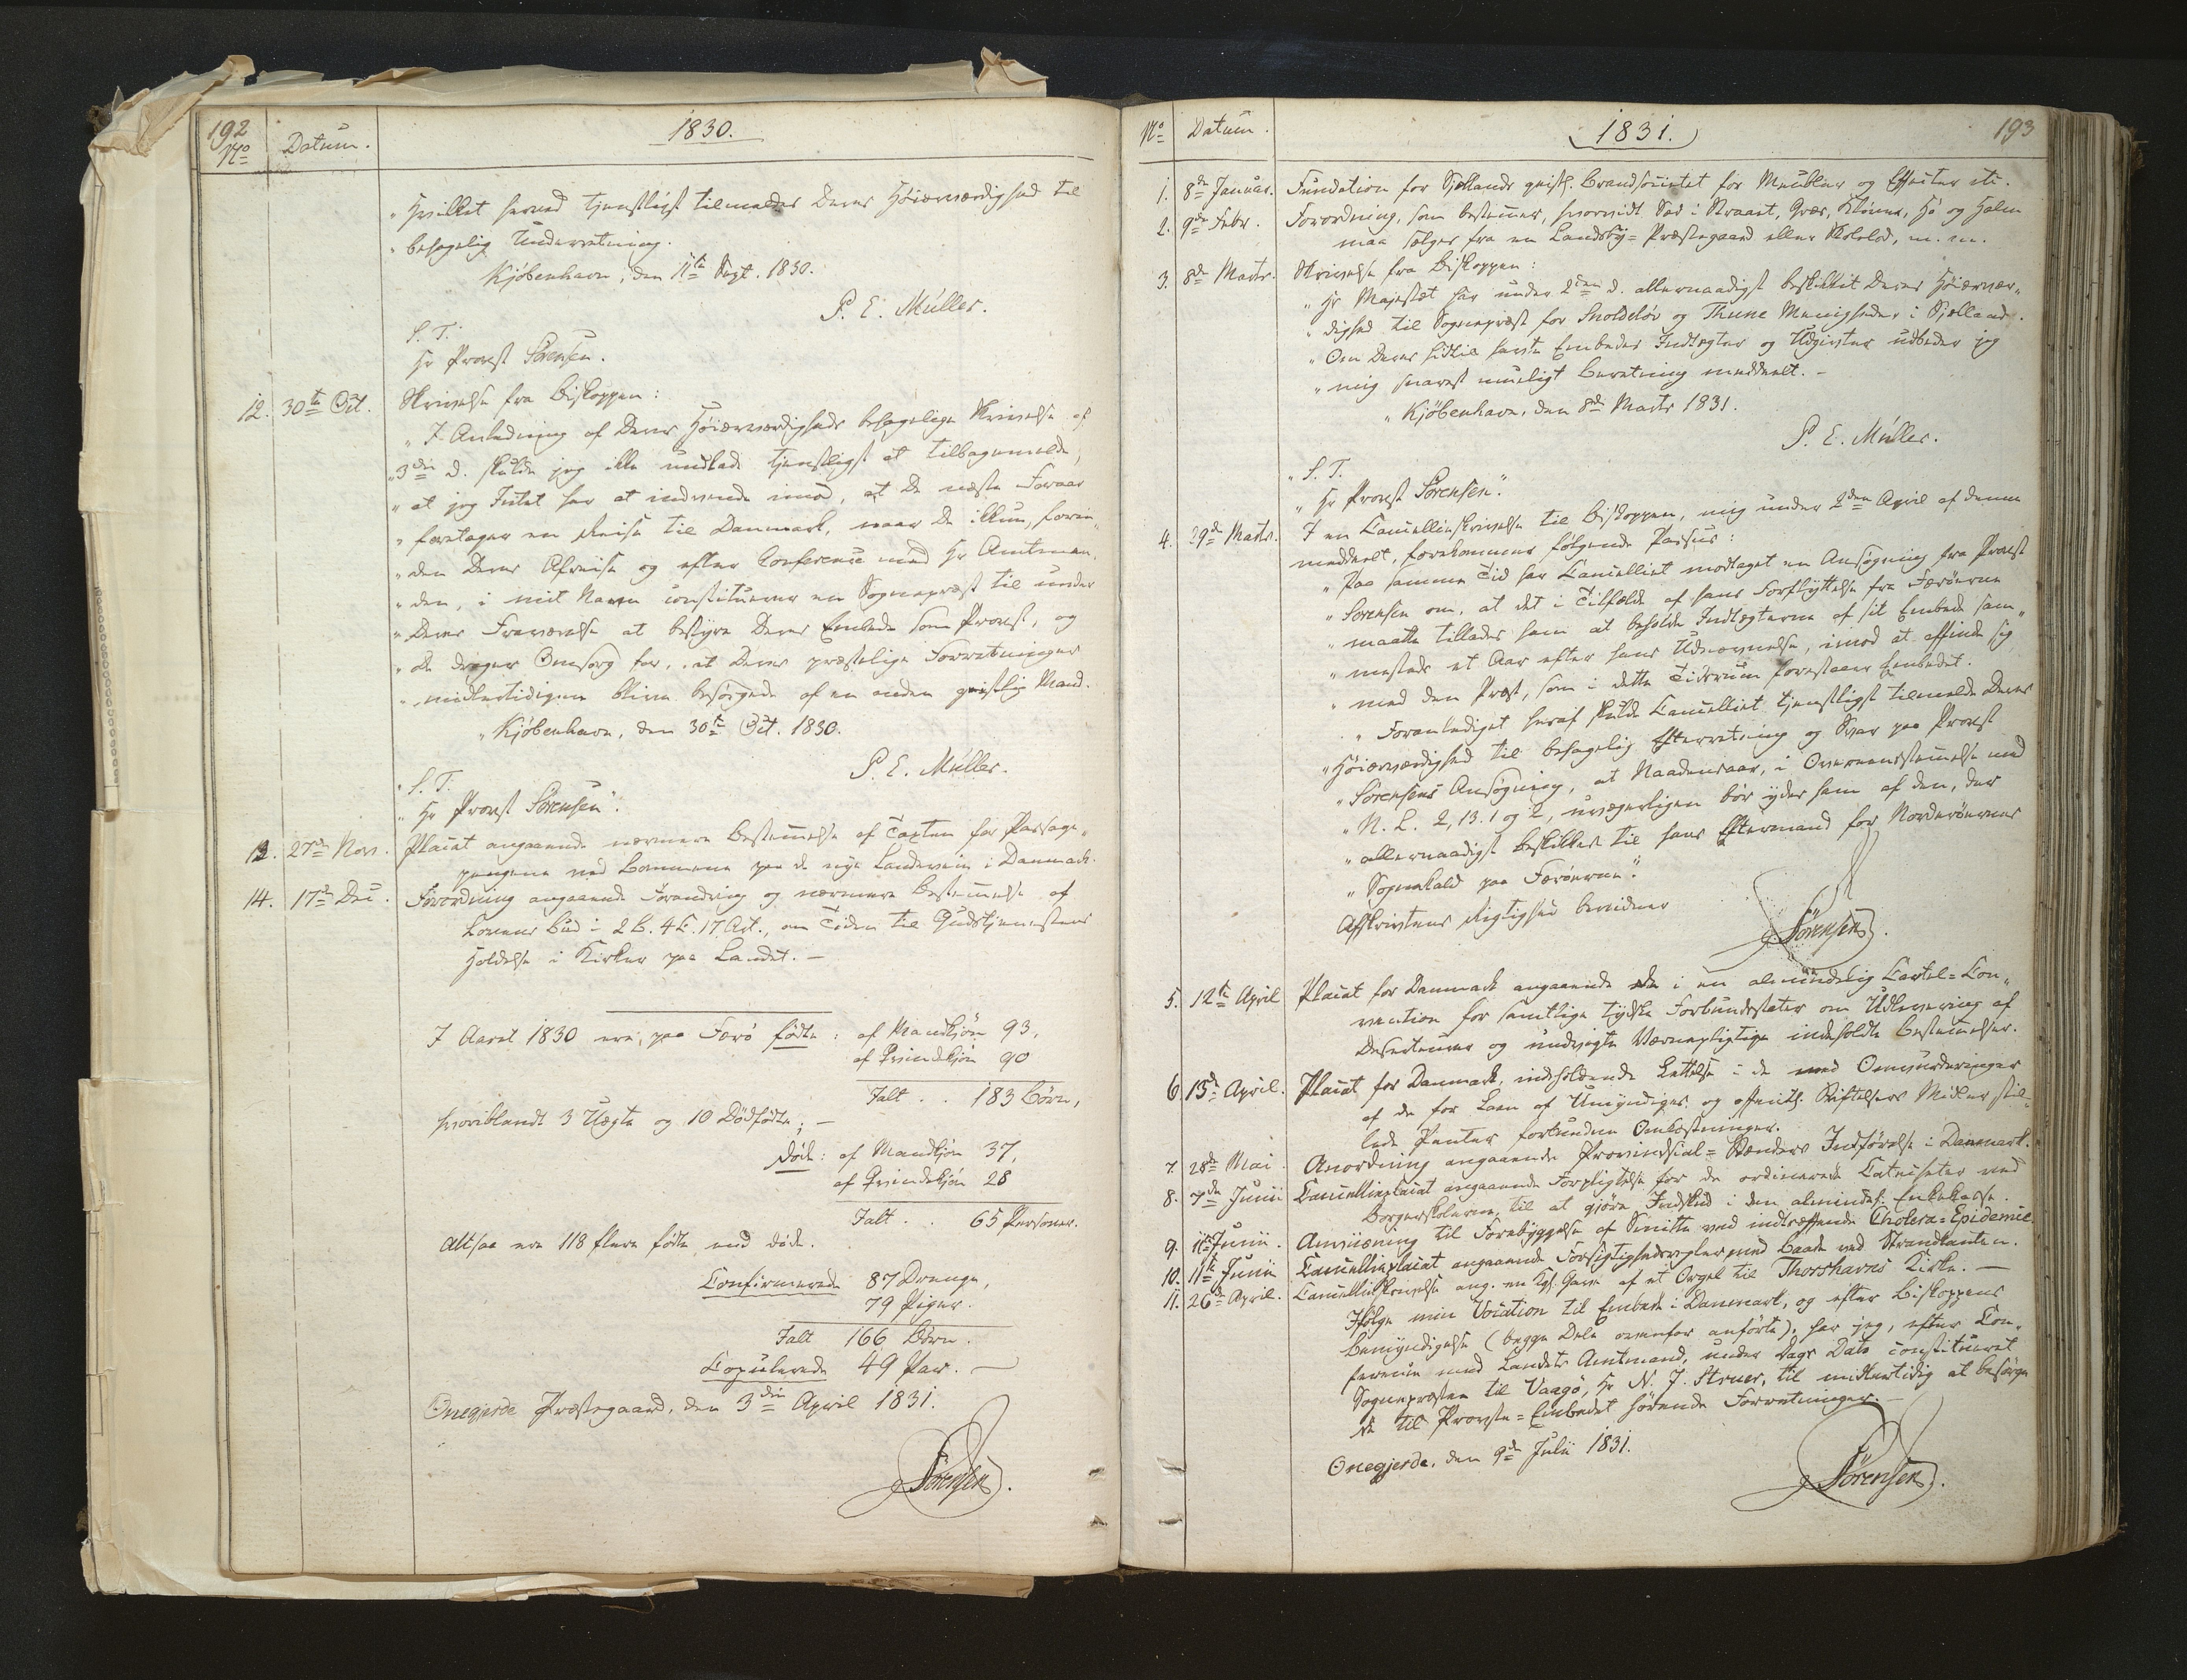 192
No Datum. 1830.
„Hvilket herved tjenstligst tilmeldes Deres Høiærværdighed til
„behagelig Underretning.
Kjöbenhavn, den 11te Sept. 1830.
P. E. Müller.
S. T.
Hr Provst Sörensen.
12. 30te Oct. Skrivelse fra Biskoppen:
„I Anledning af Deres Høiærværdigheds behagelige Skrivelse af
„3die d. skulde jeg ikke undlade tjenstligst at tilbagemelde,
„at jeg Intet har at indvende imod, at De næste Foraar
„foretager en Reise til Danmark, naar De ikkun, forin„
„den Deres Afreise og efter Conference med Hr Amtman„
„den, i mit Navn constituerer en Sognepræst til under
„Deres Fraværelse at bestyre Deres Embede som Provst, og
„De drager Omsorg for, at Deres præstelige Forretninger
„midlertidigen blive besörgede af en anden geistlig Mand.
„Kjöbenhavn, den 30te Oct. 1830.
P. E. Müller.
„S. T.
„Hr Provst Sörensen“.
13. 27de Nov. Placat angaaende nærmere Bestemmelse af Taxten for Passage„
pengene ved Bommene paa de nye Landeveie i Danmark.
14. 17de Dec. Forordning angaaende Forandring og nærmere Bestemmelse af
Lovens Bud i 2 B. 4 C. 17 Art., om Tiden til Gudstjenestens
Holdelse i Kirker paa Landet. —
I Aaret 1830 ere, paa Færö födte: af Mandkjön 93,
af Qvindekjön 90
Ialt . . 183 Börn,
hvoriblandt 3 Uægte og 10 Dödfödte; —
Döde: af Mandkjön 37,
af Qvindekjön 28
Ialt . . 65 Personer.
Altsaa ere 118 flere födte end döde.
Confirmerede 87 Drenge,
79 Piger.
Ialt 166 Börn.
Copulerede 49 Par. —
Onegjerde Præstegaard, den 3die April 1831.
Sörensen.
No Datum. 1831. 193
1. 8de Januar. Fundation for Sjællands geistl. Brandsocietet for Meubler og Effecter etc.
2. 9de Febr. Forordning, som bestemmer, hvorvidt Sæd i Straaet, Græs, Klöver, Hö og Halm
maa sælges fra en Landsby=Præstegaard eller Skolelod, m. m.
3. 8de Marts. Skrivelse fra Biskoppen:
„Hs Majestæt har under 2den d. allernaadigst beskikket Deres Höiærvær„
„dighed til Sognepræst for Snoldelöv og Thune Menigheder i Sjælland.
„Om Deres hidtil havte Embedes Indtægter og Udgivter udbeder jeg
„mig snarest mueligt Beretning meddeelt. –
„Kjöbenhavn, den 8de Marts 1831.
P. E. Müller.
„S. T.
„Hr Provst Sörensen“.
4. 29de Marts. I en Cancelliskrivelse til Biskoppen, mig under 2den April af denne
meddeelt, forekommer fölgende Passus:
„Paa samme Tid har Cancelliet modtaget en Ansögning fra Provst
„Sörensen om, at det i Tilfælde af hans Forflyttelse fra Færöerne
„maatte tillades ham at beholde Indtægterne af sit Embede sam„
„mesteds et Aar efter hans Udnævnelse, imod at affinde sig
„med den Præst, som i dette Tidsrum forestaaer Embedet.
„Foranlediget heraf skulde Cancelliet tjenstligst tilmelde Deres
„Höiærværdighed til behagelig Efterretning og Svar paa Provst
„Sörensens Ansögning, at Naadensaar, i Overeensstemmelse med
„N. L. 2, 13. 1 og 2, uvægerligen bör ydes ham af den, der
„allernaadigst beskikkes til hans Eftermand for Norderöernes
„Sognekald paa Færöerne“.
Afskrivtens Rigtighed bevidner
Sörensen.
5. 12te April Placat for Danmark angaaende de i en almindelig Cartel=Con„
vention for samtlige tydske Forbundsstater om Udlevering af
Deserteurer og undvigte Værnepligtige indeholdte Bestemmelser.
6. 13de April. Placat for Danmark, indeholdende Lettelse i de med Omvurderinger
af de for Laan af Umyndiges og offentl. Stiftelsers Midler stil„
lede Panter forbundne Omkostninger.
7. 28de Mai Anordning angaaende Provindsial=Stænders Indförelse i Danmark.
8. 7de Junii Cancellieplacat angaaende Forpligtelse for de ordinerede Catecheter ved
Borgerskolerne, til at gjöre Indskud i den almindel. Enkekasse.
9. 11te Junii. Anviisning til Forebyggelse af Smitte ved indtræffende Cholera=Epidemie.
10. 11te Junii Cancellieplacat angaaende Forsigtighedsregler med Baade ved Strandkanten.
11. 26de April. Cancelliskrivelse ang. en Kgl. Gave af et Orgel til Thorshavns Kirke. —
Ifölge min Vocation til Embede i Danmark, og efter Biskoppens
Bemyndigelse (begge Dele ovenfor anförte), har jeg, efter Con„
ference med Landets Amtmand, under Dags Dato constitueret
Sognepræsten til Vaagö, Hr N. J. Struer, til midlertidig at besörge
de til Provste=Embedet hörende Forretninger. —
Onegjerde, den 9de Julii 1831.
Sörensen.